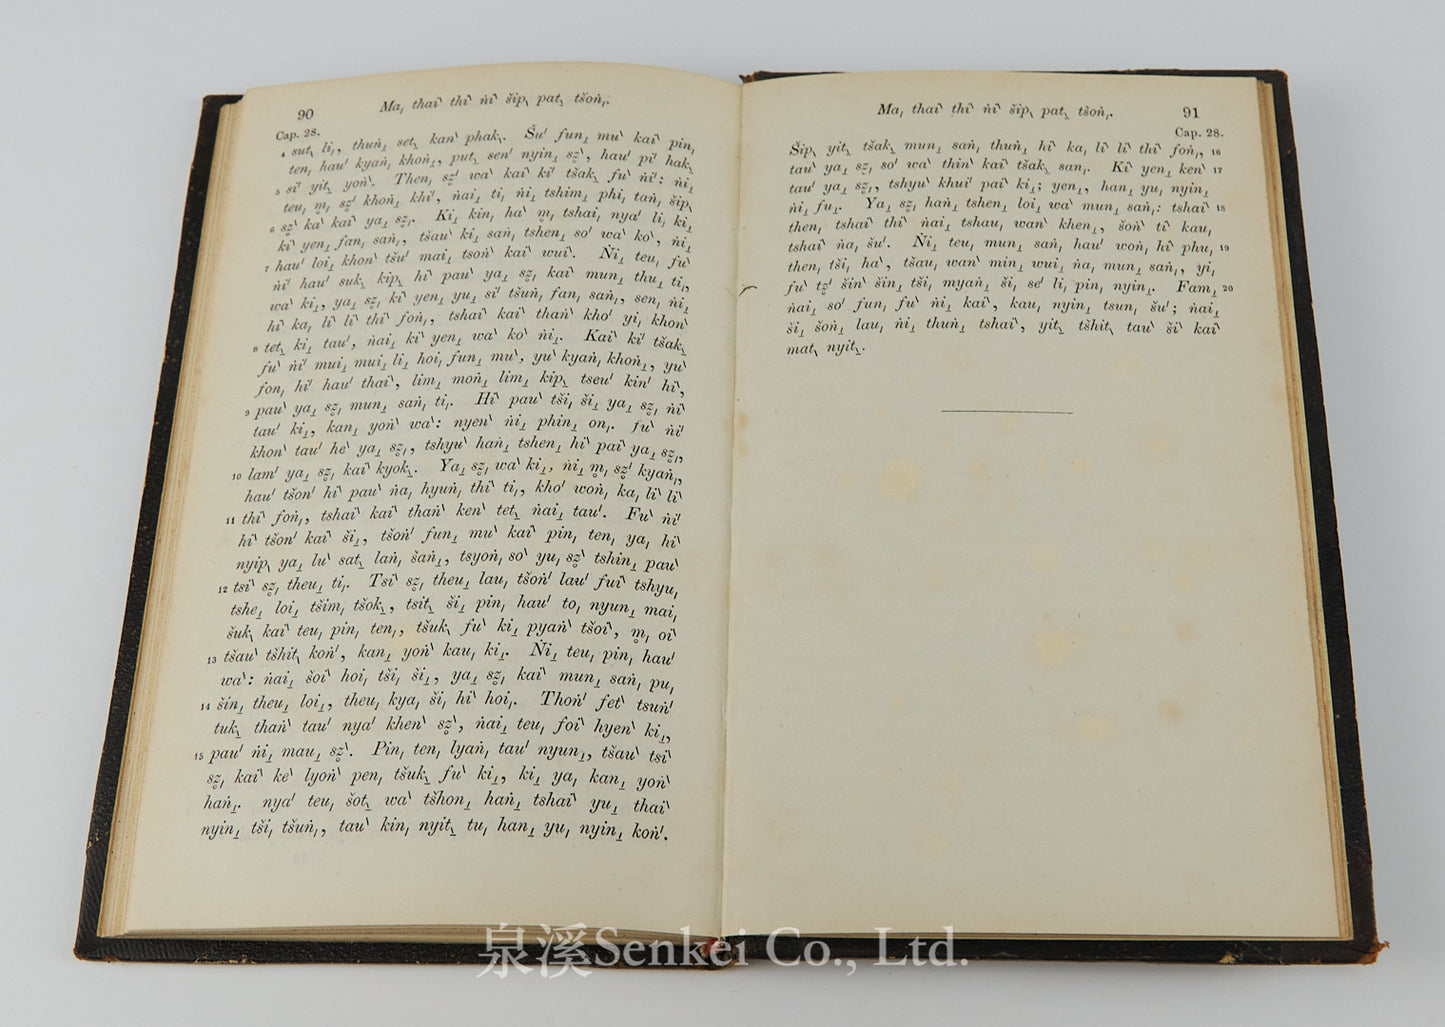 90
Ma͵ thai̔ thi̔ ṅi̔ šip͵ pat͵ tšoṅ͵.
Cap. 28.
4 sut͵ li͵, thuṅ͵ set͵ kan̔ phak͵. Šu̓ fun͵ mu̔ kai̔ pin͵
ten͵ hau̓ kyaṅ͵ khoṅ͵, put͵ sen̓ nyin͵ sẓ̔, hau̓ pi̓ hak͵
5 si̓ yit͵ yoṅ̓. Then͵ sẓ̓ wa̔ kai̔ ki̓ tšak͵ fu̔ ṅi̓: ṅi͵
teu͵ m̥͵ sẓ̓ khoṅ͵ khi̓, ṅai͵ ti͵ ṅi͵ tshim͵ phi͵ taṅ͵ šip͵
6 sẓ̔ ka̓ kai̔ ya͵ sẓ͵. Ki͵ kin͵ ha̔ m̥͵ tshai͵ nya̓ li͵ ki͵
ki̔ yen͵ fan͵ saṅ͵, tšau̔ ki͵ saṅ͵ tshen͵ so̓ wa̔ ko̔, ṅi͵
7 hau̓ loi͵ khon̔ tšu̓ mai͵ tsoṅ̔ kai̔ wui̔. Ṅi͵ teu͵ fu̔
ṅi̓ hau̓ suk͵ kip͵ hi̔ pau̔ ya͵ sẓ͵ kai̔ mun͵ thu͵ ti͵,
wa̔ ki͵, ya͵ sẓ͵ ki̔ yen͵ yu͵ si̓ tšuṅ͵ fan͵ saṅ͵, sen͵ ṅi͵
hi̔ ka͵ li̔ li̔ thi̔ foṅ͵, tshai̔ kai̔ thaṅ̔ kho̓ yi͵ khon̔
8 tet͵ ki͵ tau̓, ṅai͵ ki̔ yen͵ wa̔ ko̔ ṅi͵. Kai̔ ki̓ tšak͵
fu̔ ṅi̓ mui͵ mui͵ li͵ hoi͵ fun͵ mu̔, yu̔ kyaṅ͵ khoṅ͵, yu̔
fon͵ hi̓ hau̓ thai̔, lim͵ moṅ͵ lim͵ kip͵ tseu̓ kin̓ hi̔,
9 pau̔ ya͵ sẓ͵ mun͵ saṅ͵ ti͵. Hi̔ pau̔ tši͵ ši͵ ya͵ sẓ͵ ṅi̔
tau̓ ki͵, kan͵ yoṅ̔ wa̔: nyen̔ ṅi͵ phin͵ on͵. fu̔ ṅi̓
khon̔ tau̓ he̔ ya͵ sẓ͵, tshyu̔ haṅ͵ tshen͵ hi̔ pai̔ ya͵ sẓ͵,
10 lam̓ ya͵ sẓ͵ kai̔ kyok͵. Ya͵ sẓ͵ wa̔ ki͵, ṅi͵ m̥͵ sẓ̓ kyaṅ͵,
hau̓ tšon̓ hi̔ pau̔ ṅa͵ hyuṅ͵ thi̔ ti͵, kho̓ woṅ͵ ka͵ li̔ li̔
11 thi̔ foṅ͵, tshai̔ kai̔ thaṅ̔ ken̔ tet͵ ṅai͵ tau̓. Fu̔ ṅi̓
hi̔ tšon̓ kai̔ ši͵, tšoṅ̓ fun͵ mu̔ kai̔ pin͵ ten͵ ya͵ hi̔
nyip͵ ya͵ lu̔ sat͵ laṅ͵ šaṅ͵, tsyoṅ͵ so̔ yu͵ sẓ̔ tshin͵ pau̔
12 tsi̔ sẓ͵ theu͵ ti͵. Tsi̔ sẓ͵ theu͵ lau͵ tšoṅ̓ lau̓ fui̔ tshyu͵
tshe͵ loi͵ tšim͵ tšok͵, tsit͵ ši͵ pin͵ hau̓ to͵ nyun͵ mai͵
šuk͵ kai̔ teu͵ pin͵ ten͵, tšuk͵ fu̔ ki͵ pyaṅ̔ tšoi̔, m̥͵ oi̔
13 tšau̔ tšhit͵ koṅ̓, kan͵ yoṅ̔ kau͵ ki͵. Ṅi͵ teu͵ pin͵ hau̓
wa̔: ṅai͵ šoi̔ hoi͵ tši͵ ši͵, ya͵ sẓ͵ kai̔ mun͵ saṅ͵ pu͵
14 šin͵ theu͵ loi͵, theu͵ kya͵ ši͵ hi̔ hoi͵. Thoṅ̓ fet̓ tsuṅ̓
tuk͵ thaṅ̔ tau̓ nya̓ khen̔ sẓ̔, ṅai͵ teu͵ foi̔ hyen̔ ki͵,
15 pau̓ ṅi͵ mau͵ sẓ̔. Pin͵ ten͵ lyaṅ͵ tau̓ nyun͵, tšau̔ tsi̔
sẓ͵ kai̔ ke̔ lyoṅ̔ pen͵ tšuk͵ fu̔ ki͵, ki͵ ya͵ kan͵ yoṅ̔
haṅ͵. nya̓ teu͵ šot͵ wa̔ tšhon͵ haṅ͵ tshai̔ yu͵ thai̔
nyin͵ tši͵ tšuṅ͵, tau̔ kin͵ nyit͵ tu͵ han͵ yu͵ nyin͵ koṅ̓.
Ma͵ thai̔ thi̔ ṅi̔ šip͵ pat͵ tšoṅ͵.
91
Cap. 28.
Šip͵ yit͵ tšak͵ mun͵ saṅ͵ thuṅ͵ hi̔ ka͵ li̔ li̔ thi̔ foṅ͵, 16
tau̔ ya͵ sẓ͵ so̓ wa̔ thin̔ kai̔ tšak͵ san͵. Ki̔ yen͵ ken̔ 17
tau̓ ya͵ sẓ͵, tshyu̔ khui̓ pai̔ ki͵; yen͵, han͵ yu͵ nyin͵
ṅi͵ fu͵. Ya͵ sẓ͵ haṅ͵ tshen͵ loi͵ wa̔ mun͵ saṅ͵: tshai̔ 18
then͵ tshai̔ thi̔ ṅai͵ tshau͵ wan̔ khen͵, šoṅ̔ ti̔ kau͵
tshai̔ ṅa͵ šu̓. Ṅi͵ teu͵ mun͵ saṅ͵ hau̓ woṅ͵ hi̔ phu͵ 19
then͵ tši͵ ha̔, tšau͵ wan̔ min͵ wui͵ ṅa͵ mun͵ saṅ͵, yi͵
fu̔ tẓ̓ šin̔ šin͵ tši͵ myaṅ͵ ši͵ se̓ li͵ pin͵ nyin͵. Fam͵ 20
ṅai͵ so̓ fun͵ fu̔ ṅi͵ kai̔, kau͵ nyin͵ tsun͵ šu̓; ṅai͵
ši͵ šoṅ͵ lau͵ ṅi͵ thuṅ͵ tshai̔, yit͵ tšhit͵ tau̔ ši̔ kai̔
mat͵ nyit͵.
泉溪Senkei Co., Ltd.